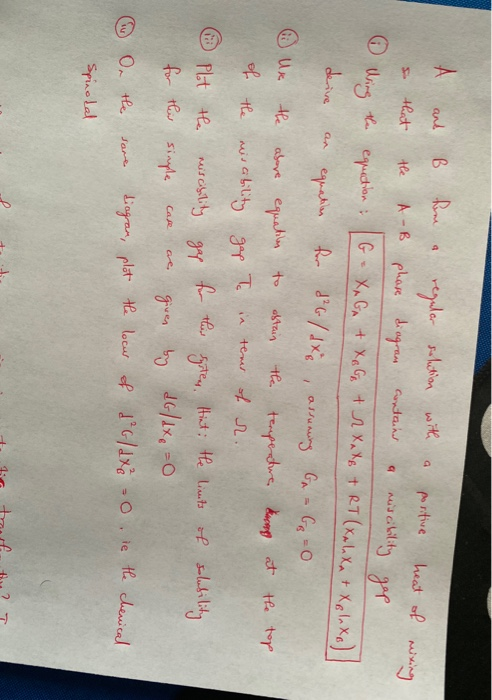 A and B form a regular solution with a positive heat of mixing
so that the A-B phase diagram contains a miscibility gap
(i) Using the equation: G = XAGA + XBGB + ΩXAXB + RT(XAlnXA + XBlnXB)
derive an equation for d²G/dXB², assuming GA = GB = 0
(ii) Use the above equation to obtain the temperature at the top
of the miscibility gap Tc in terms of Ω.
(iii) Plot the miscibility gap for this system. Hint: the limits of solubility
for this simple case are given by dG/dXB = 0
(iv) On the same diagram, plot the locus of d²G/dXB² = 0, ie the chemical
spinodal